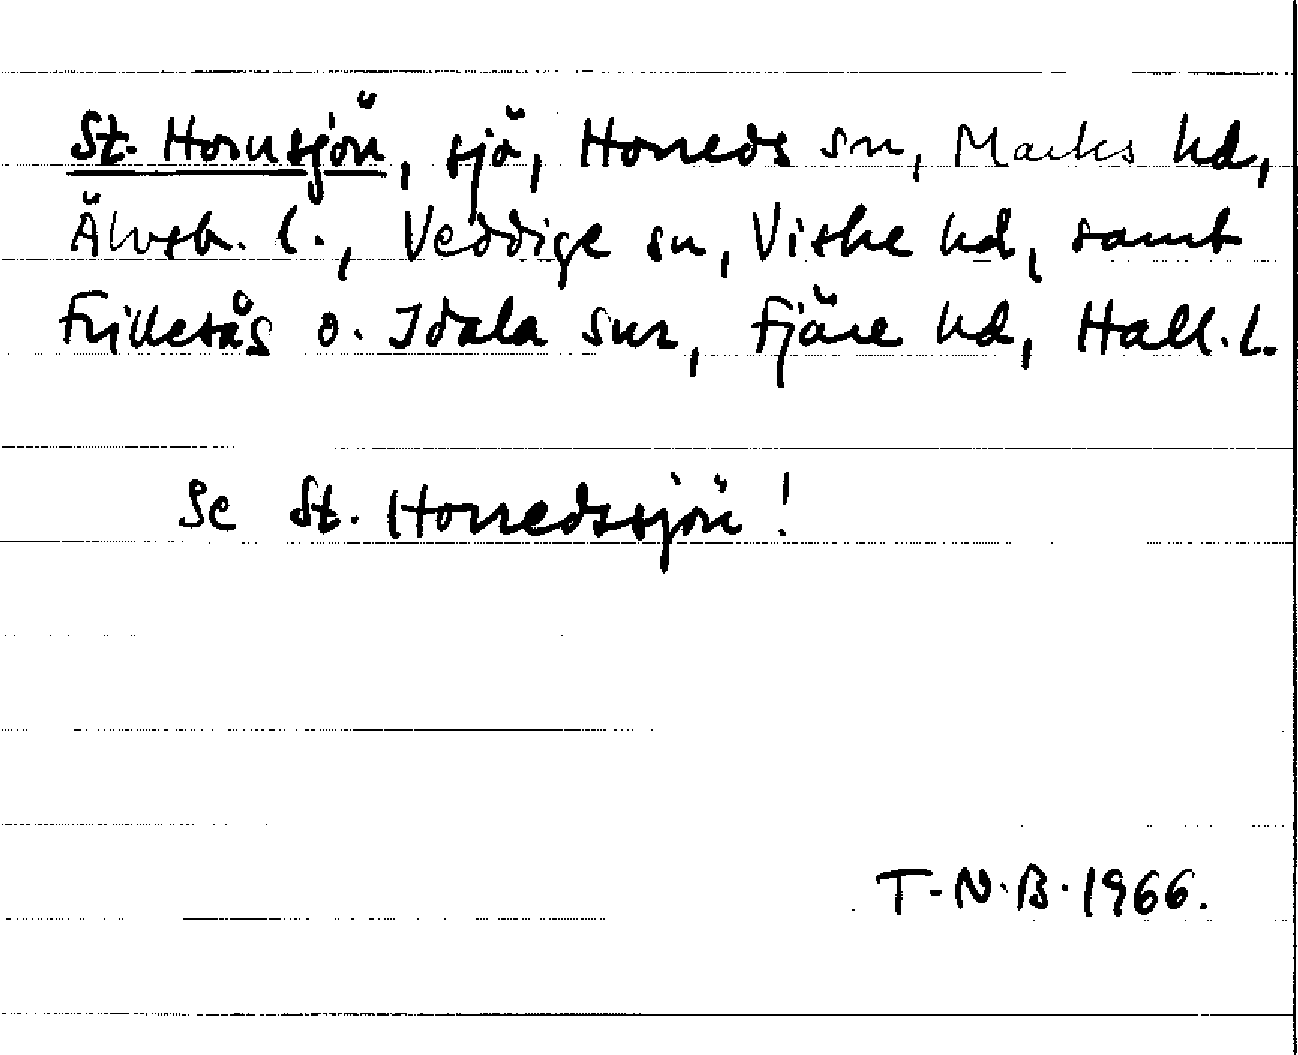 St. Hornsjön, sjö, Horreds sn, Marks hd,
Älvsb. l., Veddige sn, Viske hd, samt
Frillesås o. Idala snr, Fjäre hd, Hall. l.
Se St. Horredssjön!
T-N.B. 1966.